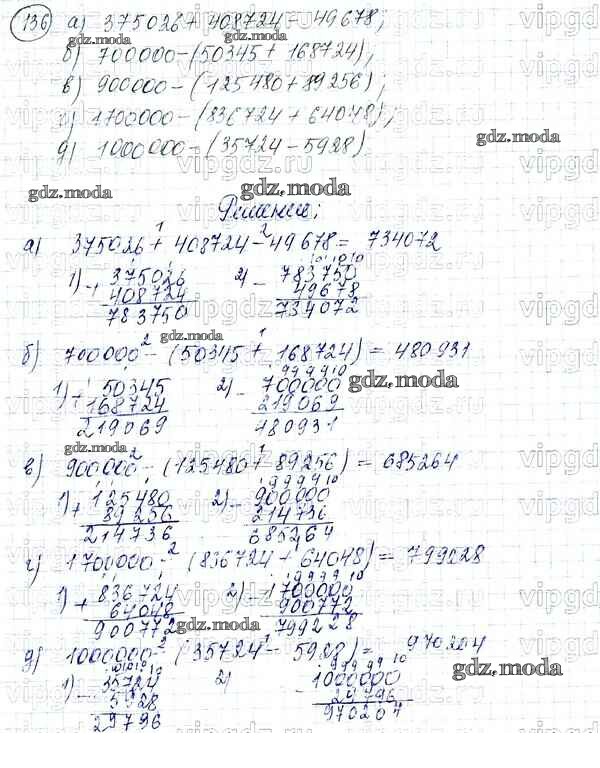 136 а) 375026 + 408724 - 49678;
б) 700000 - (50345 + 168724);
в) 900000 - (125480 + 89256);
г) 1700000 - (836724 + 64048);
д) 1000000 - (35724 - 5928)
gdz.moda
gdz.moda
gdz.moda
Решение;
а) 375026 + 408724 - 49678 = 734072
1) + 375026 2) - 783750
408724 49678
783750 734072
gdz.moda
gdz.moda
б) 700000 - (50345 + 168724) = 480931
gdz.moda
1) + 50345 2) - 700000
168724 219069
219069 480931
gdz.moda
в) 900000 - (125480 + 89256) = 685264
1) + 125480 2) - 900000
89256 214736
214736 685264
gdz.moda
г) 1700000 - (836724 + 64048) = 799228
1) + 836724 2) - 1700000
64048 900772
900772 799228
д) 1000000 - (35724 - 5928) = 970204
gdz.moda
gdz.moda
1) - 35724 2) - 1000000
5928 29796
29796 970204
vipgdz.ru